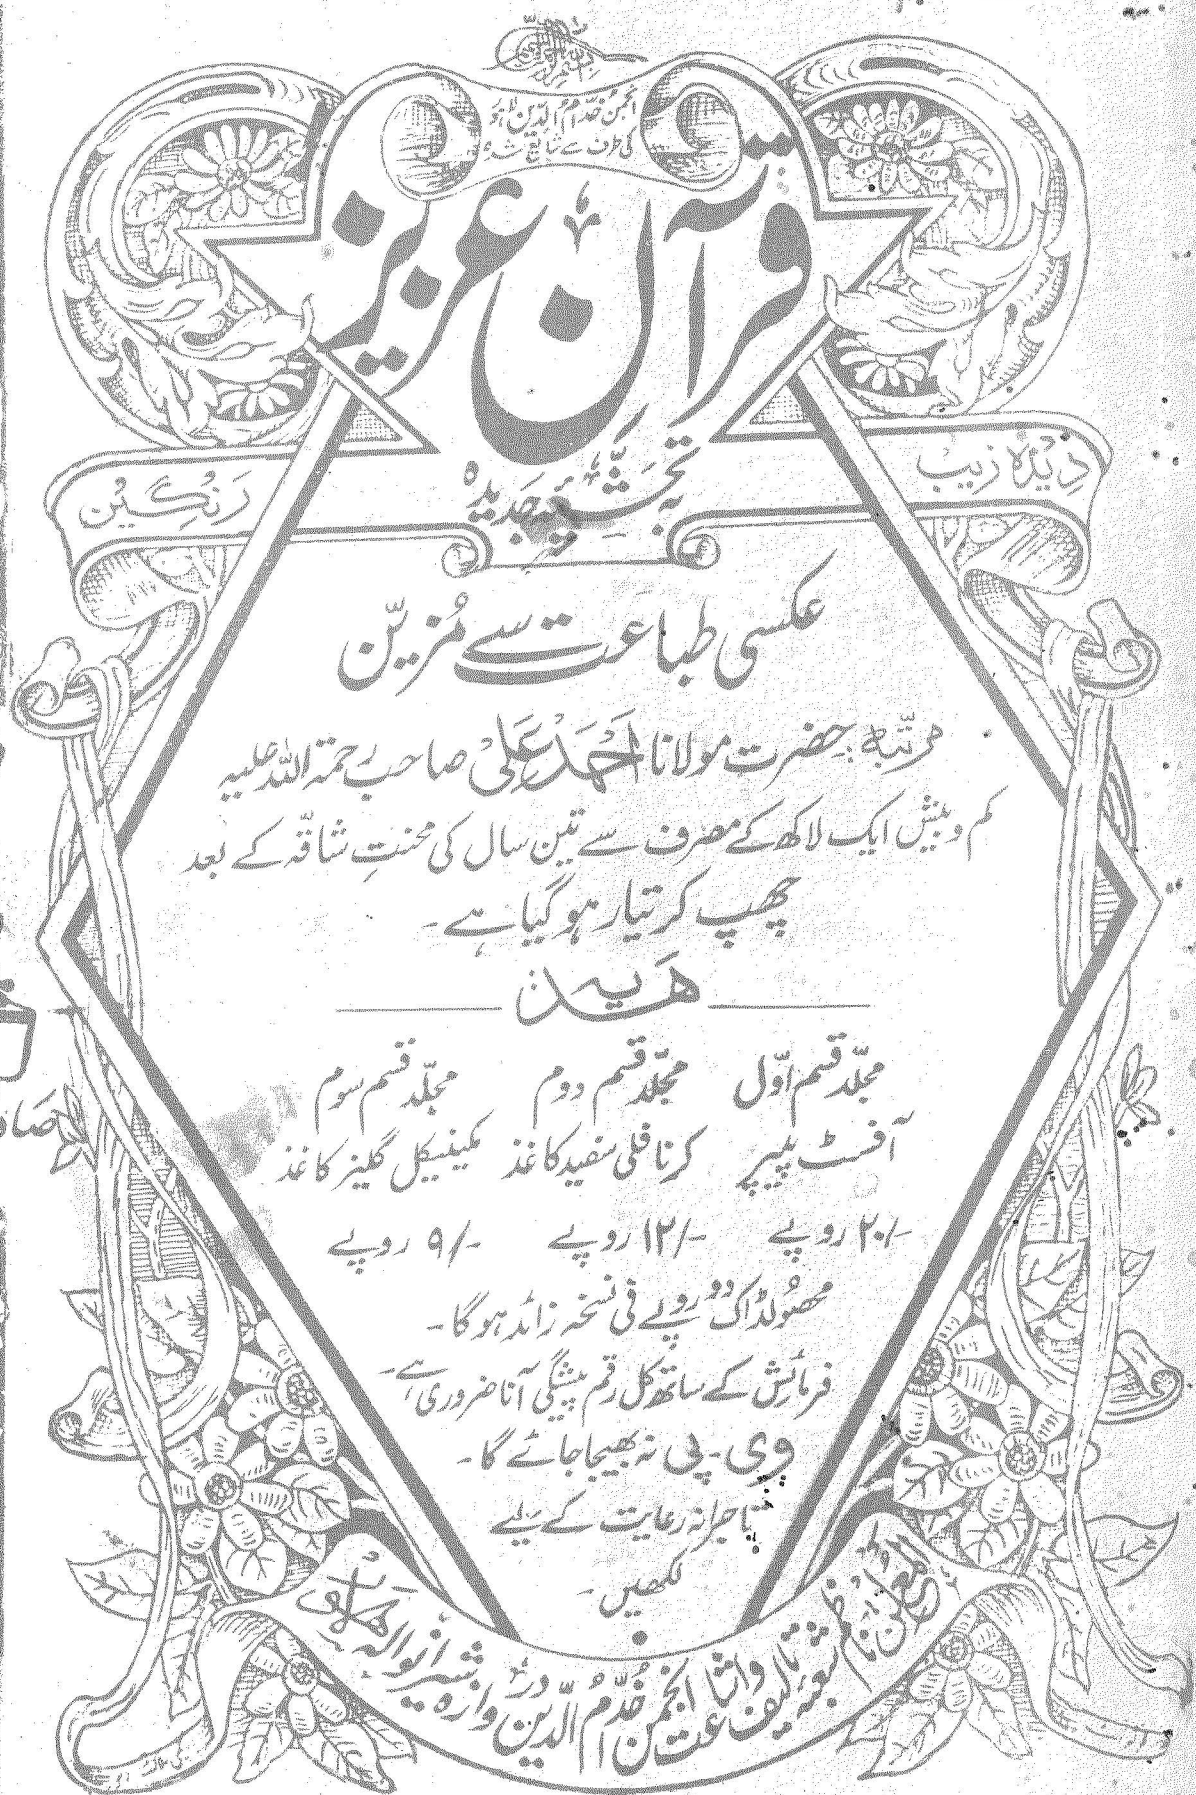 بسم اللہ الرحمن الرحیم
انجمن خدّام الدّین لاہور
کی طرف سے شائع شدہ
قرآن عزیز
بہ تحشیہ جدیدہ
دِیدہ زیب
رَنگین
عکسی طباعت سے مُزیّن
مرتّبہ حضرت مولانا احمد علی صاحب رحمۃ اللہ علیہ
کم و بیش ایک لاکھ کے مصرف سے تین سال کی محنتِ شاقّہ کے بعد
چھپ کر تیار ہو گیا ہے۔
ھدیہ
مجلّد قسم اوّل مجلّد قسم دوم مجلّد قسم سوم
آفسٹ پیپر کرنافلی سفید کاغذ مکینیکل گلیز کاغذ
۲۰/- روپے ۱۲/- روپے ۹/- روپے
محصُولڈاک دو روپے فی نسخہ زائد ہو گا۔
فرمائش کے ساتھ کل رقم پیشگی آنا ضروری ہے۔
وی۔پی نہ بھیجا جائے گا۔
تاجرانہ رعایت کے لیے
لکھیں۔
المعلن ناظم شعبۂ تالیف و اشاعت انجمن خدّام الدّین دروازہ شیرانوالہ لاہور